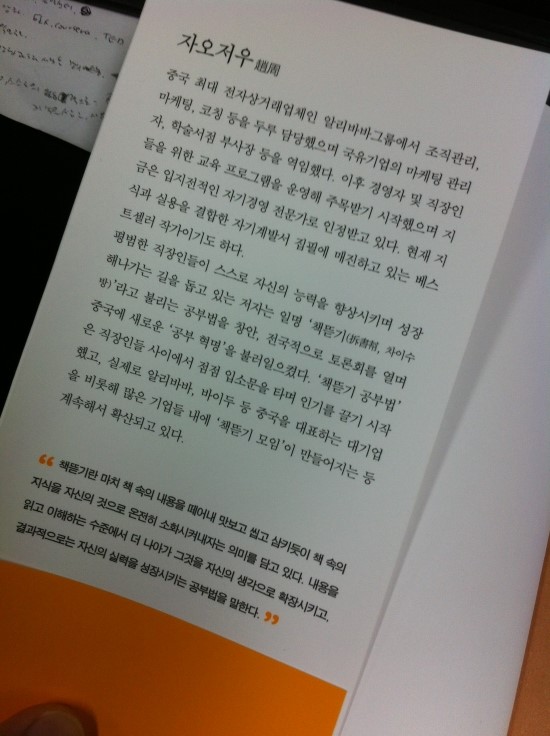 자오저우 趙周
중국 최대 전자상거래업체인 알리바바그룹에서 조직관리,
마케팅, 코칭 등을 두루 담당했으며 국유기업의 마케팅 관리
자, 학술서점 부사장 등을 역임했다. 이후 경영자 및 직장인
들을 위한 교육 프로그램을 운영해 주목받기 시작했으며 지
금은 입지전적인 자기경영 전문가로 인정받고 있다. 현재 지
식과 실용을 결합한 자기계발서 집필에 매진하고 있는 베스
트셀러 작가이기도 하다.
평범한 직장인들이 스스로 자신의 능력을 향상시키며 성장
해나가는 길을 돕고 있는 저자는 일명 ‘책뜯기(拆書幇, 차이수
방)’라고 불리는 공부법을 창안, 전국적으로 토론회를 열며
중국에 새로운 ‘공부 혁명’을 불러일으켰다. ‘책뜯기 공부법’
은 직장인들 사이에서 점점 입소문을 타며 인기를 끌기 시작
했고, 실제로 알리바바, 바이두 등 중국을 대표하는 대기업
을 비롯해 많은 기업들 내에 ‘책뜯기 모임’이 만들어지는 등
계속해서 확산되고 있다.
“ 책뜯기란 마치 책 속의 내용을 떼어내 맛보고 씹고 삼키듯이 책 속의
지식을 자신의 것으로 온전히 소화시켜내자는 의미를 담고 있다. 내용을
읽고 이해하는 수준에서 더 나아가 그것을 자신의 생각으로 확장시키고,
결과적으로는 자신의 실력을 성장시키는 공부법을 말한다. ”